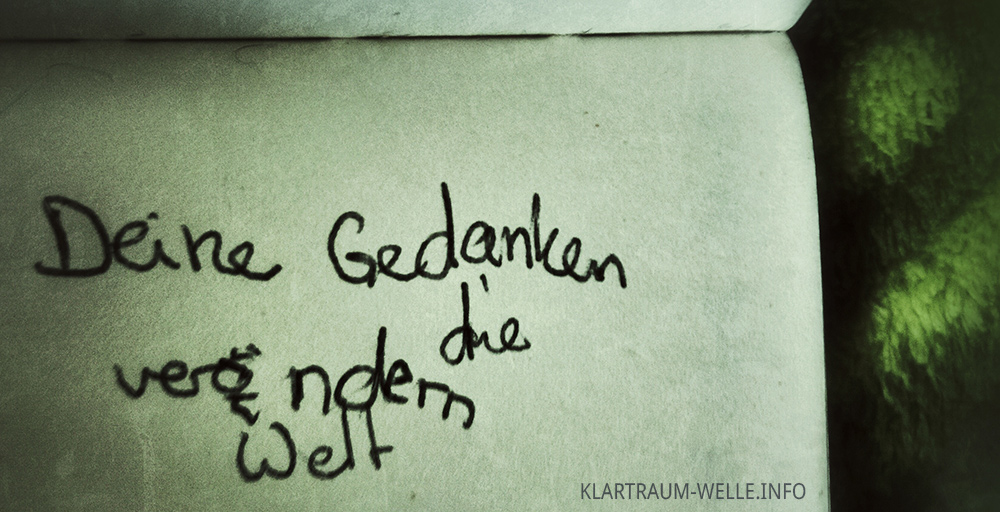 Deine Gedanken
die
verändern
Welt
KLARTRAUM-WELLE.INFO